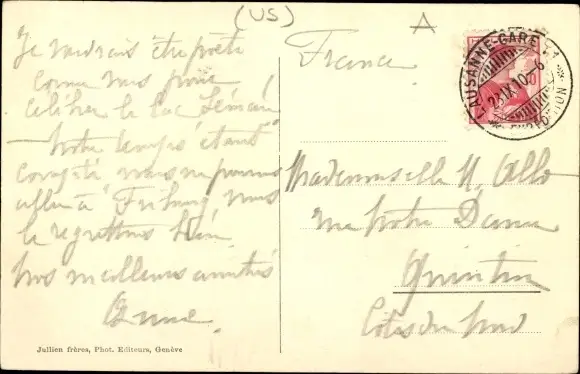 (US)
A
Je voudrais être poète
comme vous pour
célébrer le Lac Léman
notre temps étant
compté nous ne pouvons
aller à Fribourg nous
le regrettons bien
nos meilleures amitiés
Anne
France
LAUSANNE-GARE
23.IX.10-6
EXPEDITION
Mademoiselle M. Ollo
rue Notre Dame
Quintin
Côtes du Nord
Jullien frères, Phot. Editeurs, Genève